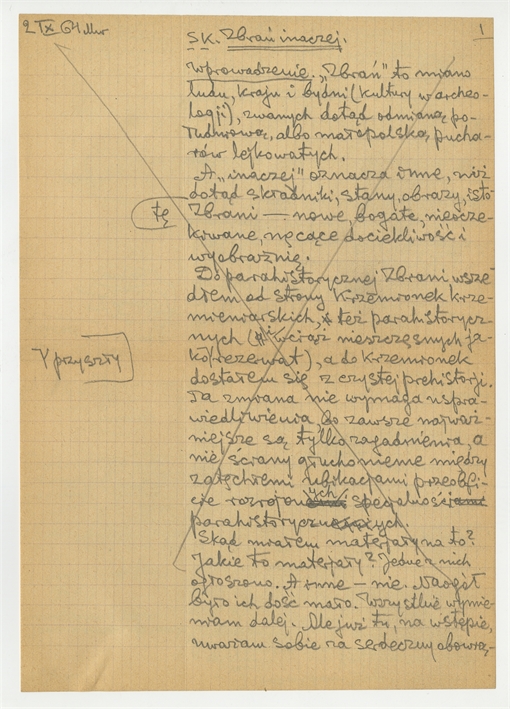 2 IX 64
1
SK. Zbrań inaczej.
Wprowadzenie. „Zbrań” to miano
ludu, kraju i bydni (kultury w archeo-
logji), zwanych dotąd odmianą po-
łudniową, albo małopolską, pucha-
rów lejkowatych.
A „inaczej” oznacza inne, niż
dotąd składniki, stany, obrazy,
tę
Zbrani — nowe, bogate, nieocze-
kiwane, nęcące dociekliwość i
wyobraźnię.
Do parahistorycznej Zbrani wsze-
dłem od strony Krzemionek krze-
mieniarskich, też parahistorycz-
nych (i wciąż nieszczęsnych ja-
ko rezerwat), a do Krzemionek
przyszły
dostałem się z czystej prehistorji.
Ta zmiana nie wymaga uspra-
wiedliwienia, bo zawsze najważ-
niejsze są tylko zagadnienia, a
nie ściany głuchonieme między
zatęchłemi ubikacjami przeobfi-
cie rozrojonych specjalności
parahistorycznych.
Skąd miałem materjały na to?
Jakie to materjały? Jedne z nich
ogłoszono. A inne — nie. Naogół
było ich dość mało. Wszystkie wymie-
niam dalej. Ale już tu, na wstępie,
uważam sobie za serdeczny obowią-